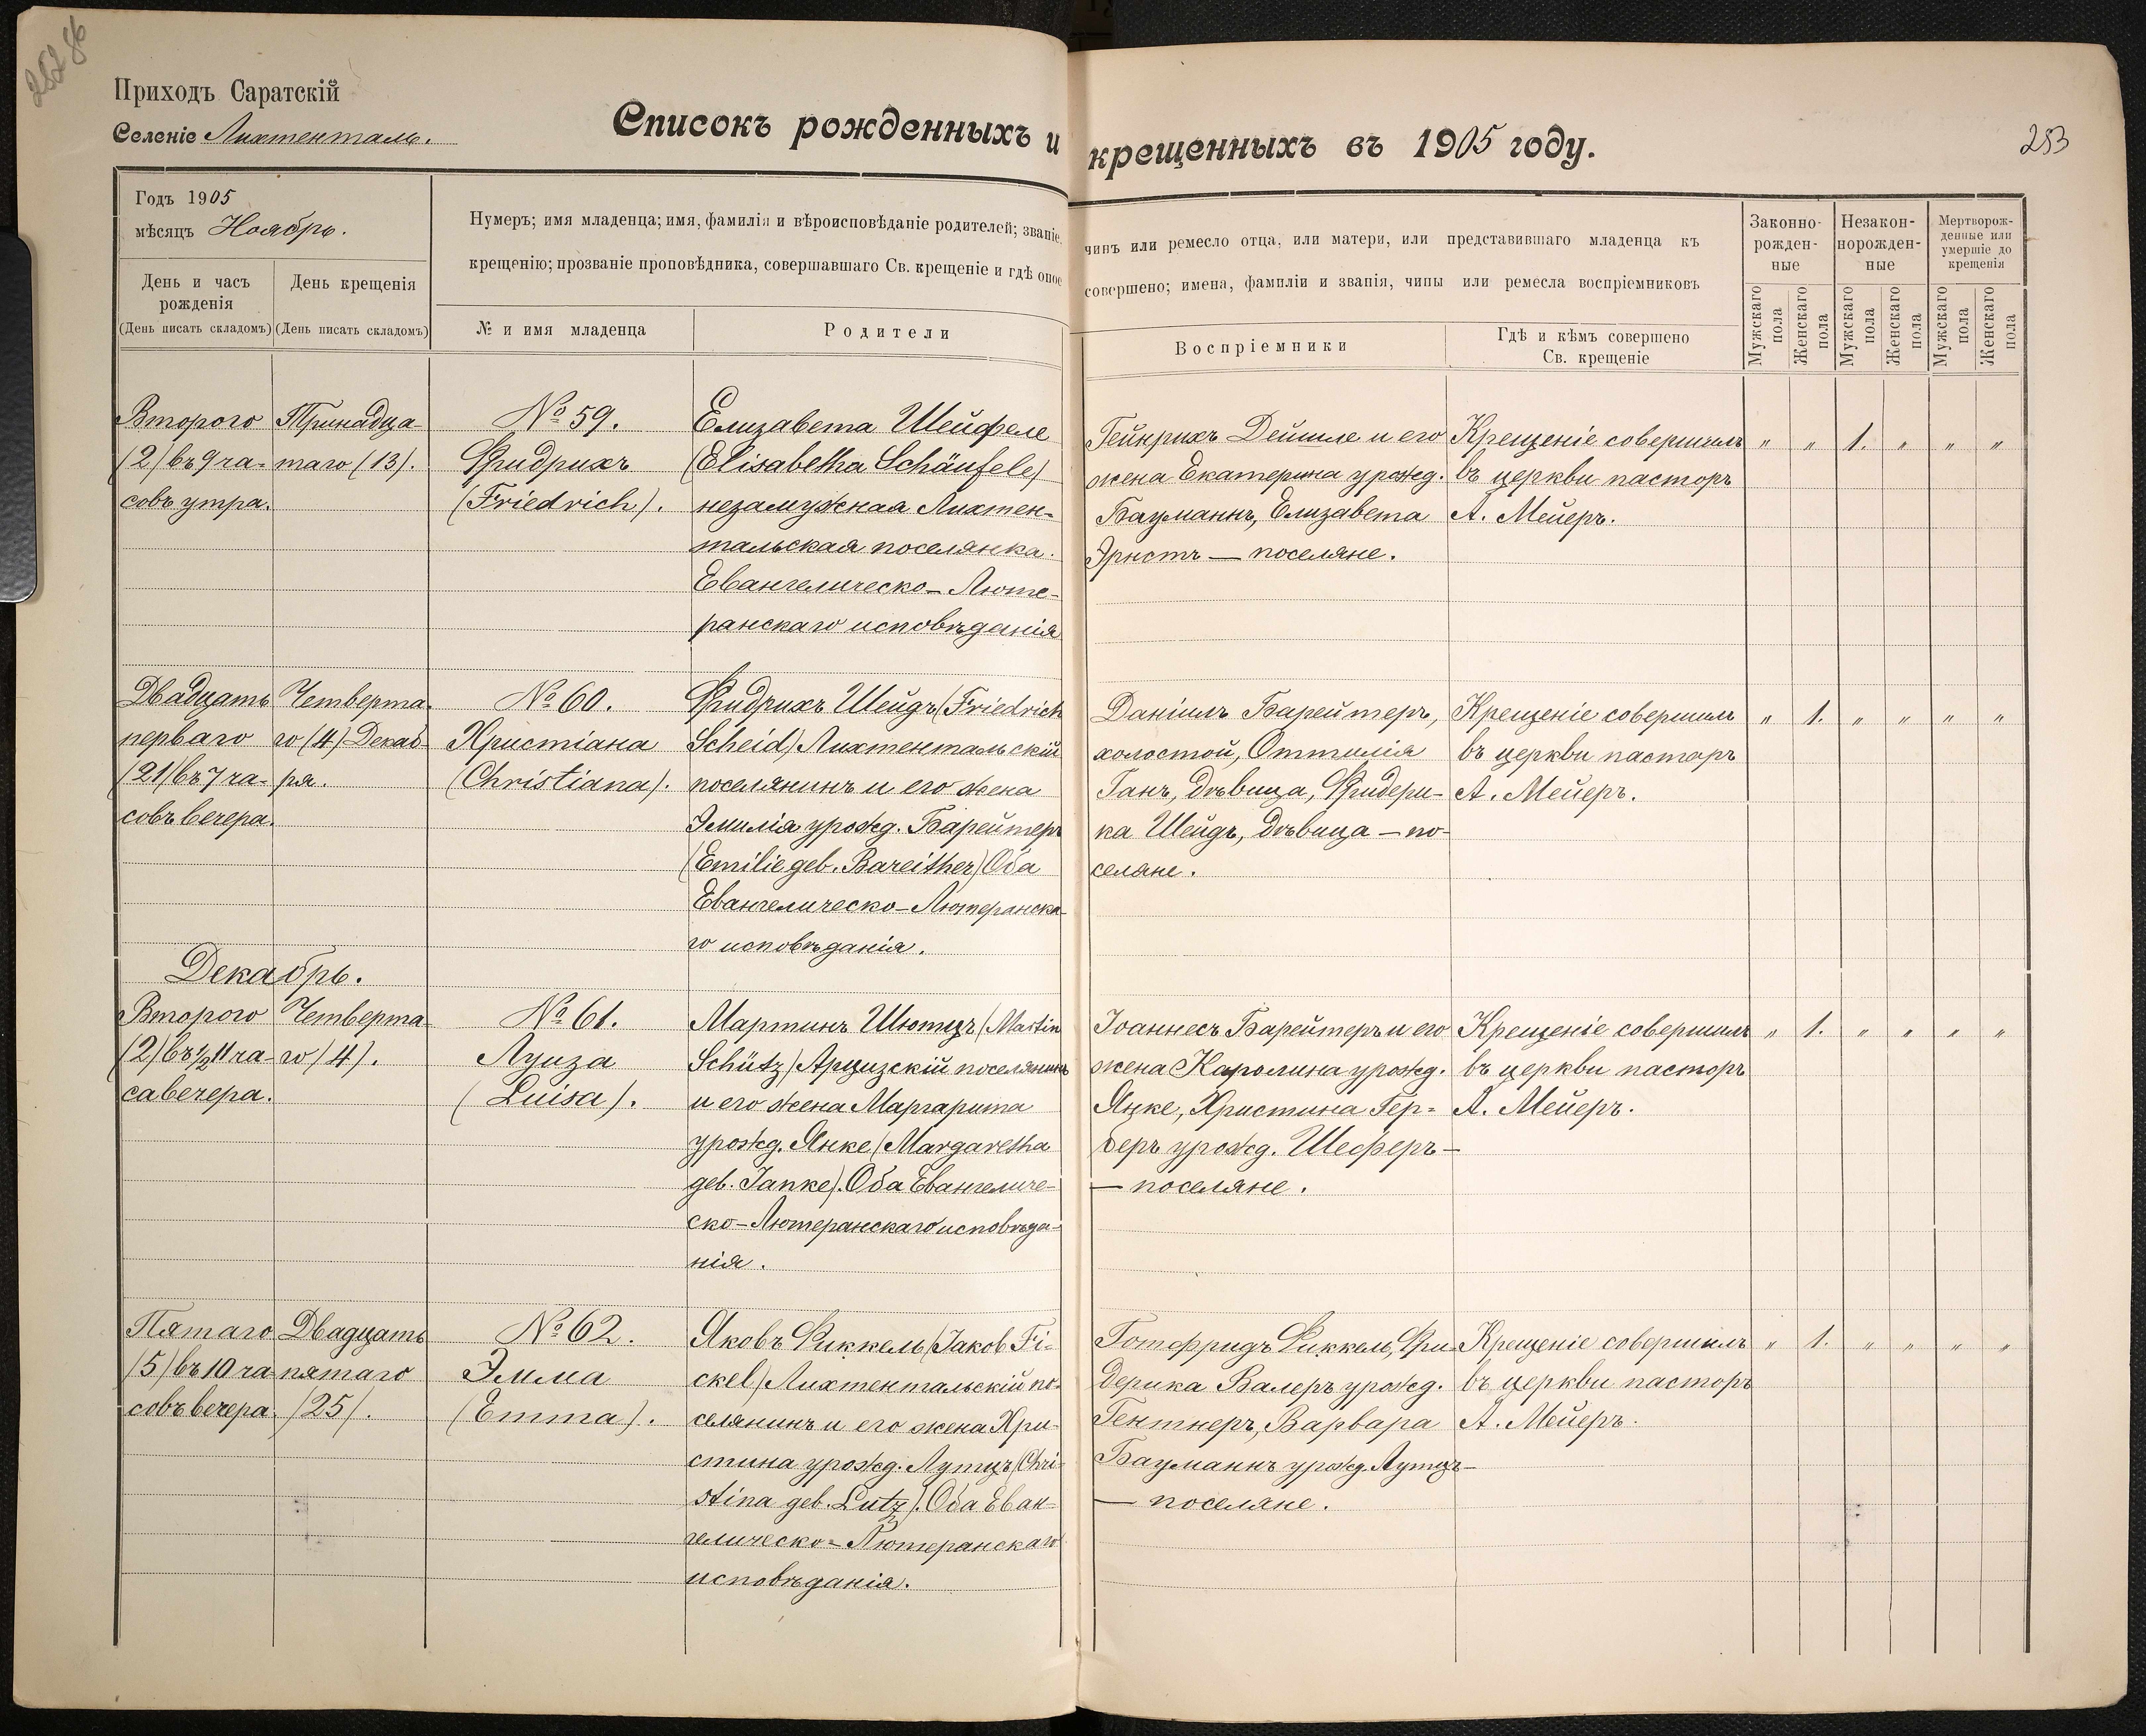 Приходъ Саратскій
Селеніе Лихтенталь.
Списокъ рожденныхъ и крещенныхъ въ 1905 году.
253
Годъ 1905
мѣсяцъ Ноябрь.
День и часъ рожденія
(День писать складомъ)
День крещенія
(День писать складомъ)
Нумеръ; имя младенца; имя, фамилія и вѣроисповѣданіе родителей; званіе,
крещенію; прозваніе проповѣдника, совершавшаго Св. крещеніе и гдѣ оное
№ и имя младенца
Родители
чинъ или ремесло отца, или матери, или представившаго младенца къ
совершено; имена, фамиліи и званія, чины или ремесла воспріемниковъ
Воспріемники
Гдѣ и кѣмъ совершено
Св. крещеніе
Законно-
рожден-
ные
Незакон-
норожден-
ные
Мертворож-
денные или
умершіе до
крещенія
Мужскаго пола
Женскаго пола
Мужскаго пола
Женскаго пола
Мужскаго пола
Женскаго пола
Второго
(2) въ 9 ча-
совъ утра.
Тринадца
таго (13).
№ 59.
Фридрихъ
(Friedrich).
Елизавета Шейфеле
(Elisabetha Schäufele)
незамужная Лихтен-
тальская поселянка.
Евангелическо-Люте-
ранскаго исповѣданія
Гейнрихъ Дейшле и его
жена Екатерина урожд.
Бауманнъ, Елизавета
Эрнстъ — поселяне.
Крещеніе совершилъ
въ церкви пасторъ
А. Мейеръ.
" " 1. " " "
Двадцать
перваго
(21) въ 7 ча-
совъ вечера.
Четверта-
го (4) Декаб-
ря.
№ 60.
Христіана
(Christiana).
Фридрихъ Шейдъ (Friedrich
Scheid) Лихтентальскій
поселянинъ и его жена
Эмилія урожд. Барейтеръ
(Emilie geb. Bareither) Оба
Евангелическо-Лютеранска-
го исповѣданія.
Даніилъ Барейтеръ,
холостой, Оттилія
Ганъ, дѣвица, Фридери-
ка Шейдъ, дѣвица — по-
селяне.
Крещеніе совершилъ
въ церкви пасторъ
А. Мейеръ.
" 1. " " " "
Декабрь.
Второго
(2) въ ½ 11 ча-
са вечера.
Четверта-
го (4).
№ 61.
Луиза
(Luisa).
Мартинъ Шютцъ (Martin
Schütz) Арцизскій поселянинъ
и его жена Маргарита
урожд. Янке (Margaretha
geb. Janke). Оба Евангеличе-
ско-Лютеранскаго исповѣда-
нія.
Іоаннесъ Барейтеръ и его
жена Каролина урожд.
Яцке, Христина Гер-
беръ урожд. Шеферъ —
— поселяне.
Крещеніе совершилъ
въ церкви пасторъ
А. Мейеръ.
" 1. " " " "
Пятаго
(5) въ 10 ча-
совъ вечера.
Двадцать
пятаго
(25).
№ 62.
Эмма
(Emma).
Яковъ Фиккель (Jakob Fi-
ckel) Лихтентальскій по-
селянинъ и его жена Хри-
стина урожд. Лутцъ (Chri-
stina geb. Lutz). Оба Еван-
гелическо-Лютеранскаго
исповѣданія.
Готфридъ Фиккель, Фри-
дерика Валеръ урожд.
Гентнеръ, Варвара
Бауманнъ урожд. Лутцъ —
— поселяне.
Крещеніе совершилъ
въ церкви пасторъ
А. Мейеръ.
" 1. " " " "